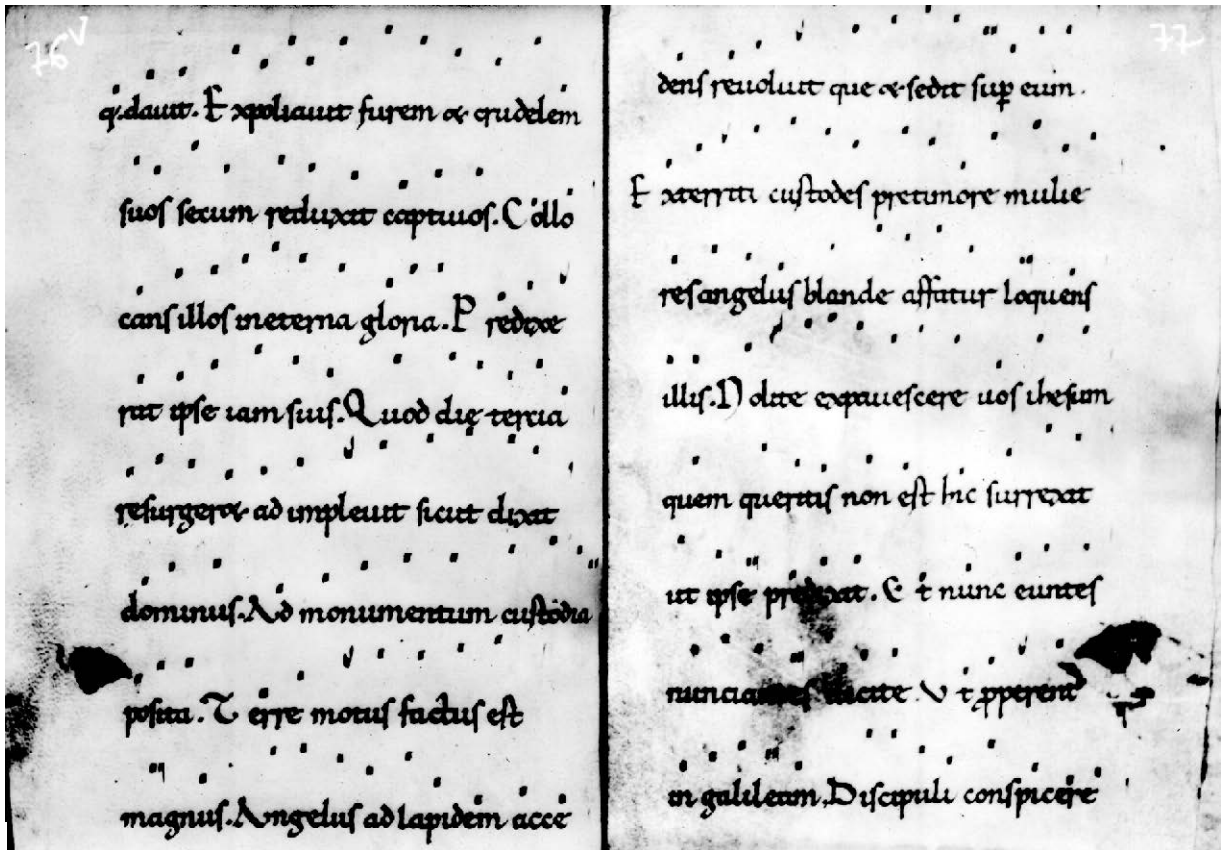 76v
q;dauit. Expoliauit furem & crudelem
suos secum reduxit captiuos. Collo
cans illos in eterna gloria. Predixe
rat ipse iam suis. Quod die tercia
resurger& ad impleuit sicut dixit
dominus. Ad monumentum custodia
posita. Terre motus factus est
magnus. Angelus ad lapidem acce
77
dens reuoluit que & sedit sup eum.
Exterriti custodes pretimore mulie
res angelus blande affatur loquens
illis. Nolite expauescere uos ihesum
quem queritis non est hic surrexit
ut ipse predixit. Et nunc euntes
nunciantes dicite. Vt pperent
in galileam, Discipuli conspicere